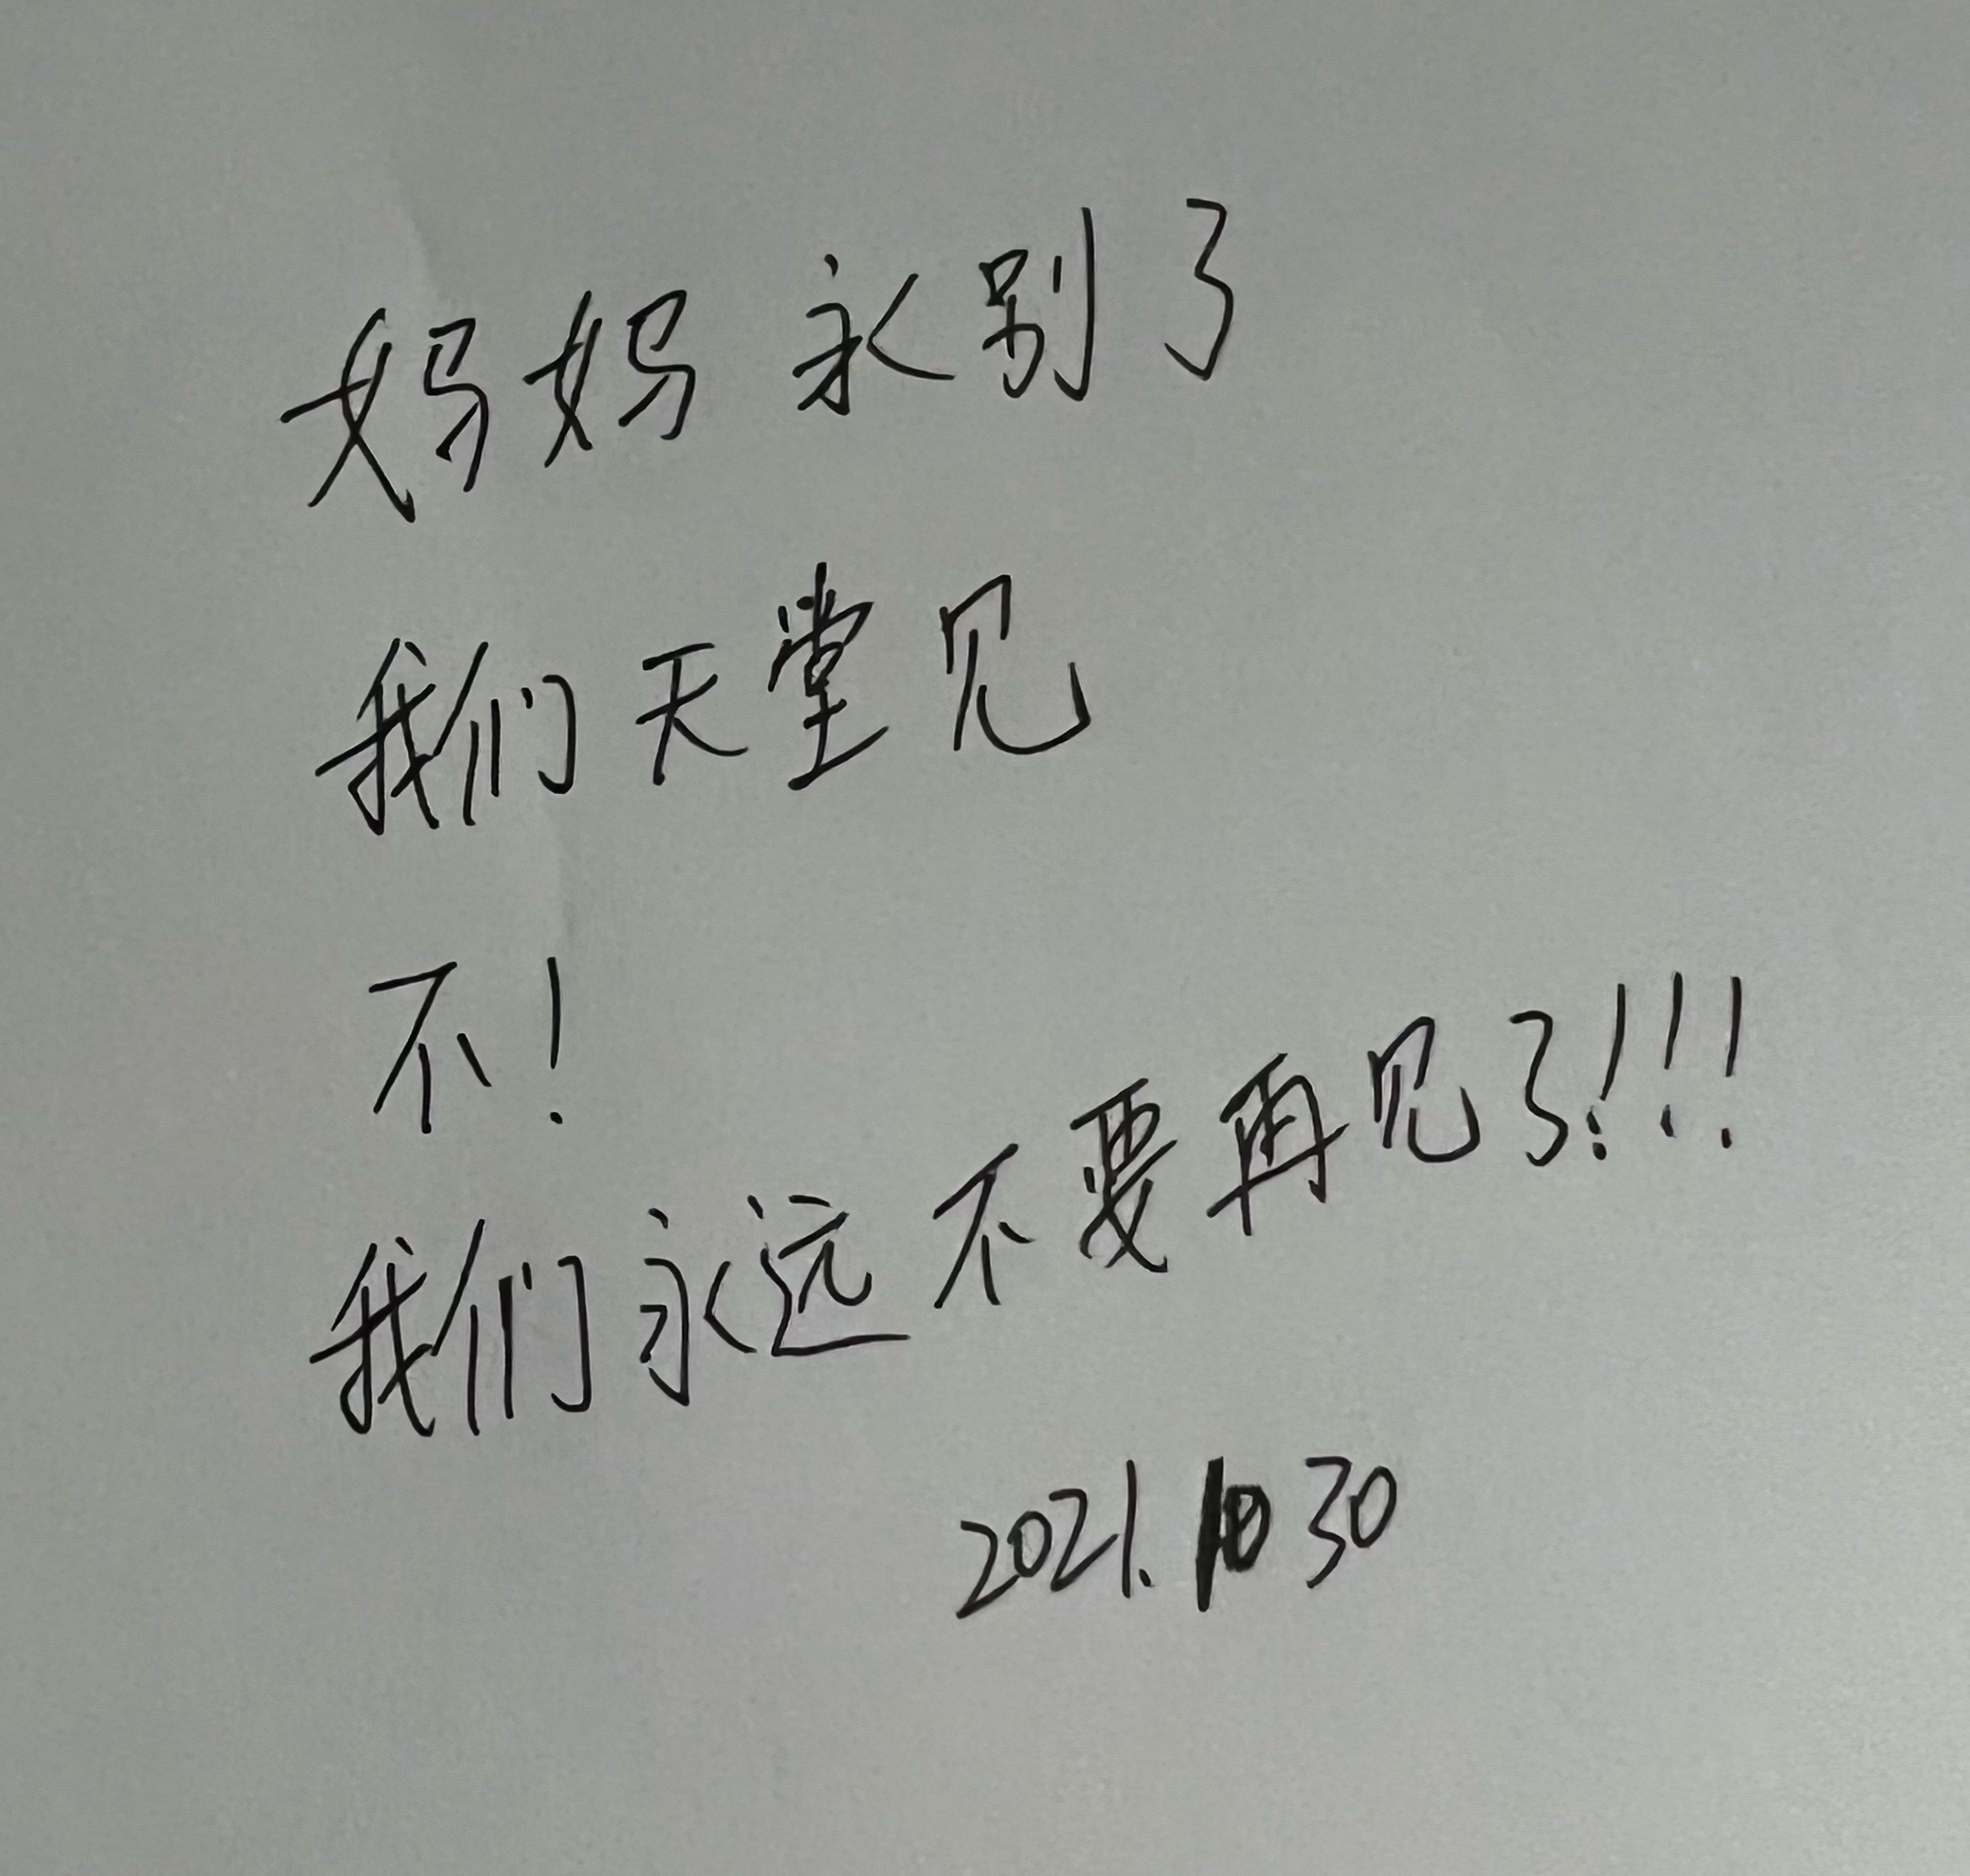 妈妈 永别了
我们天堂见
不！
我们永远不要再见了！！！
2021.10 30